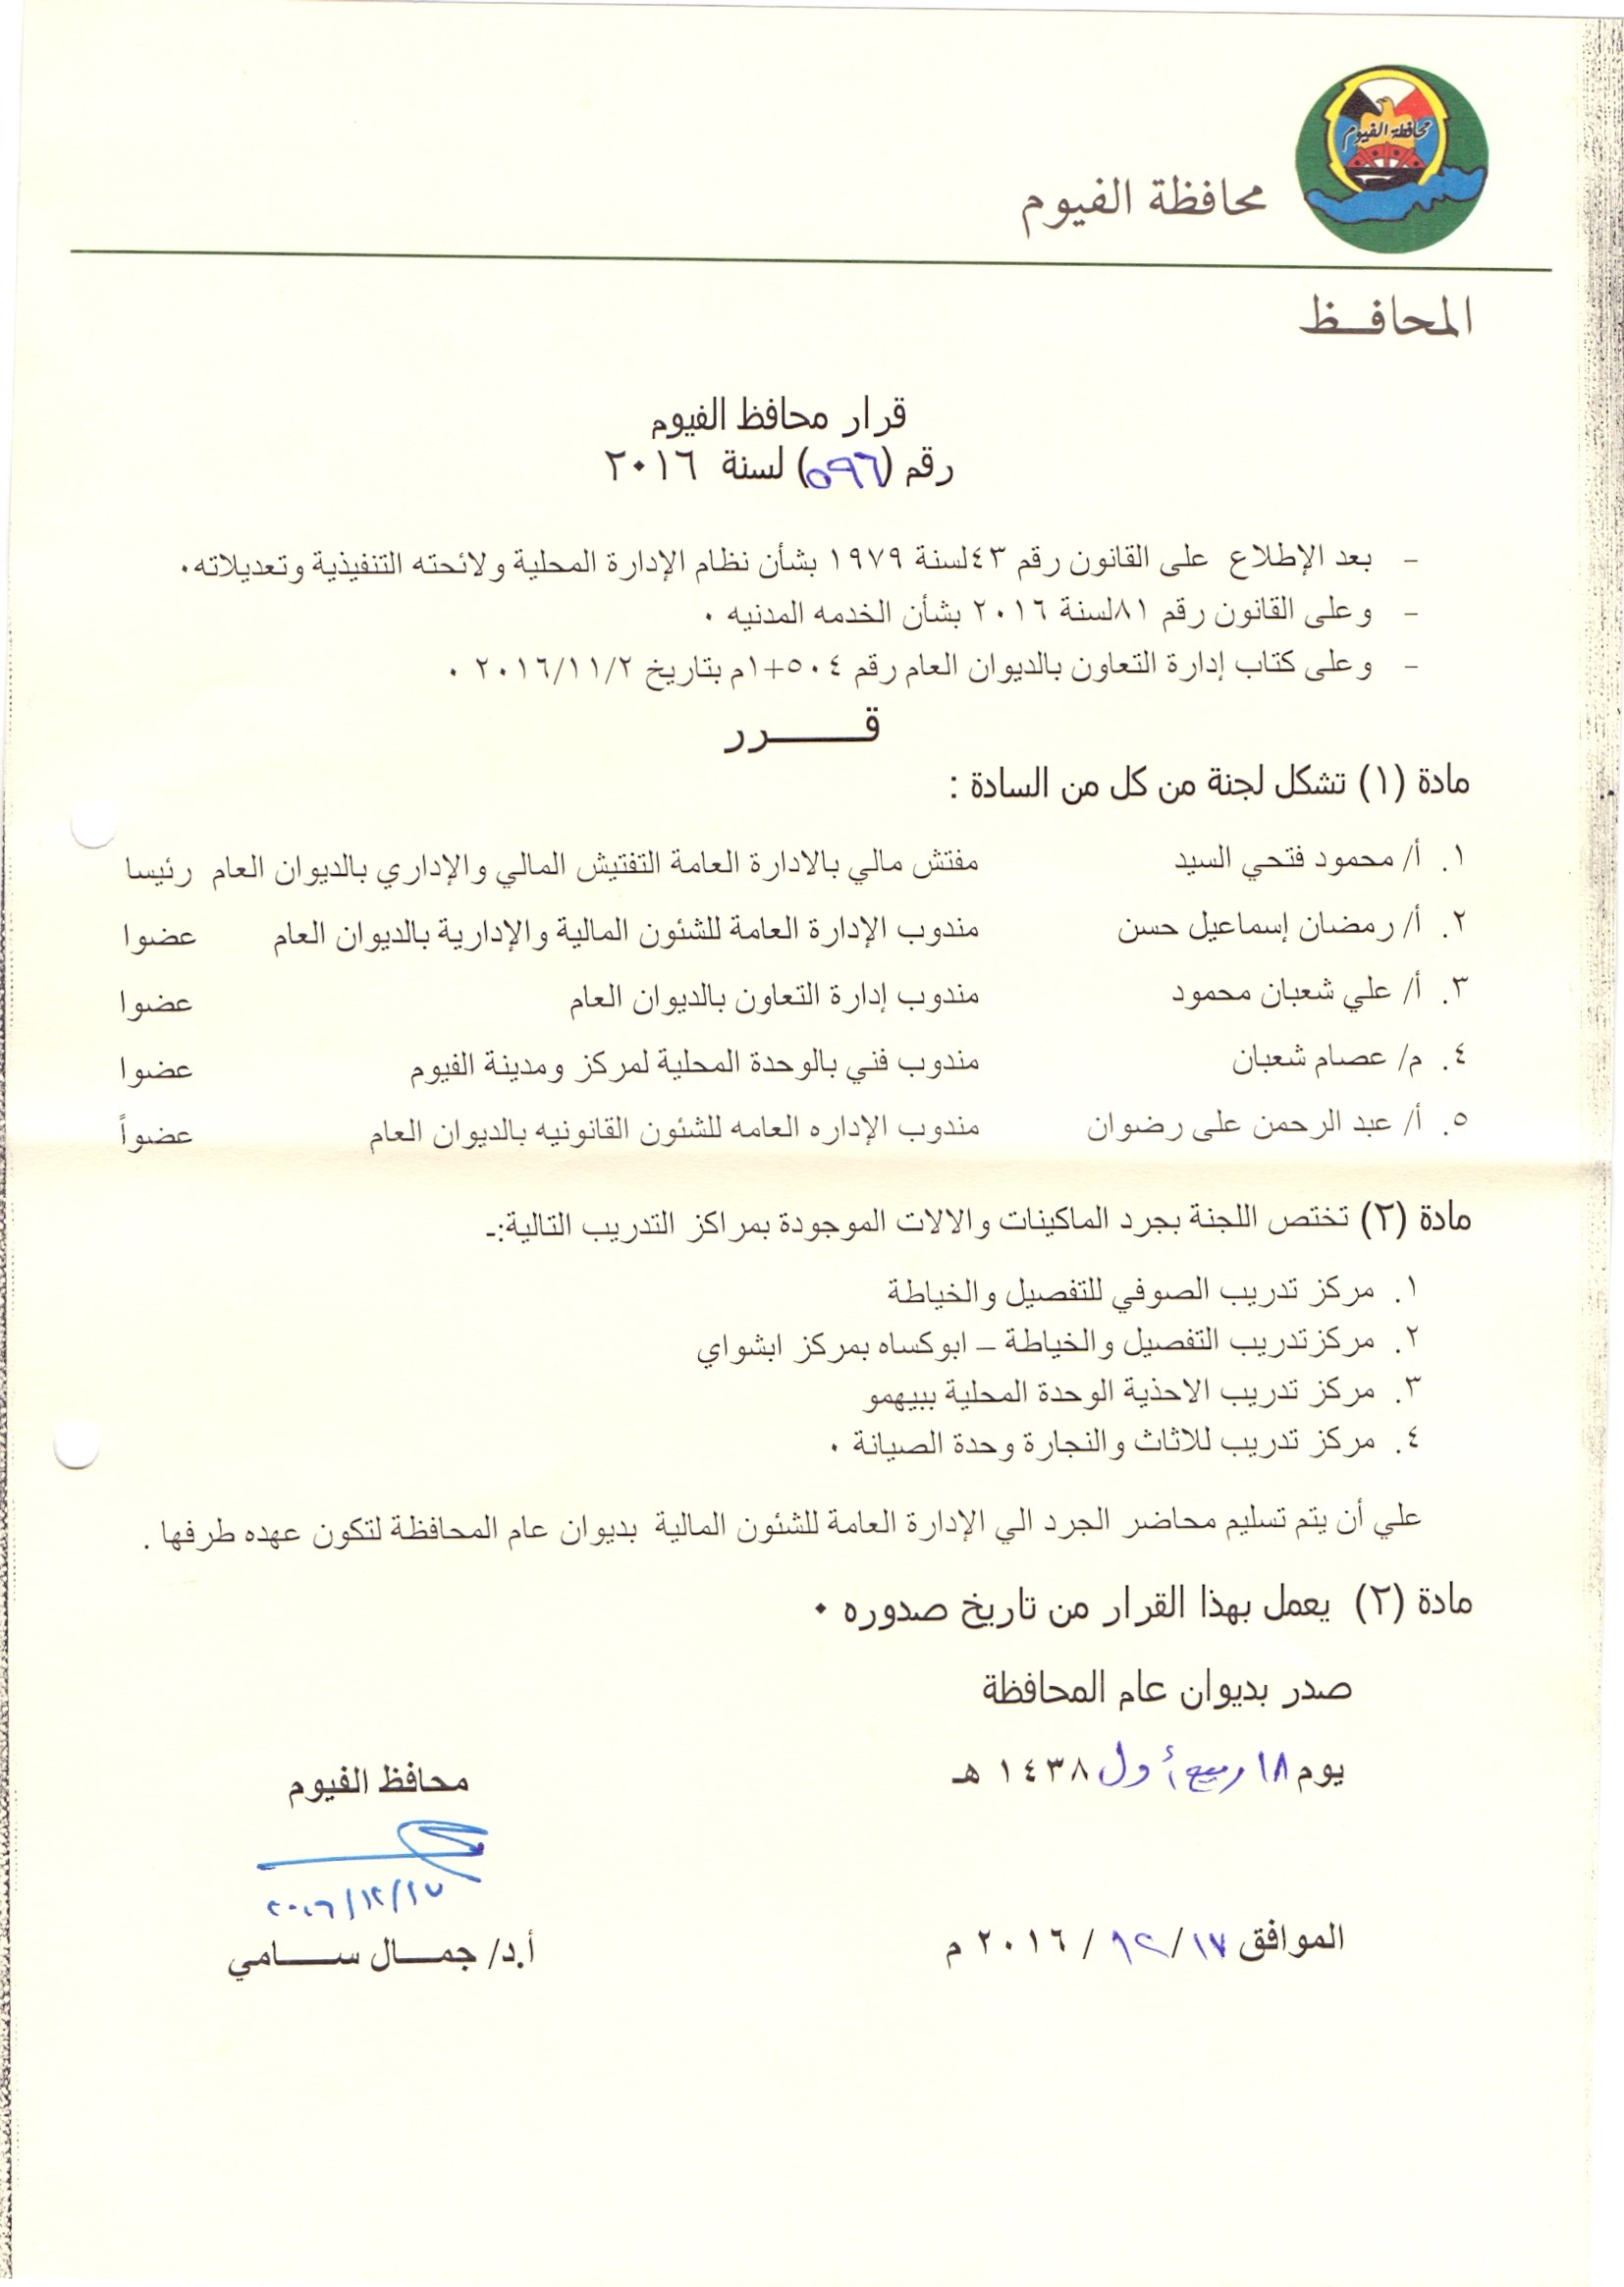 محافظة الفيوم
محافظة الفيوم
المحافـــظ
قرار محافظ الفيوم
رقم (٥٩٦) لسنة ٢٠١٦
- بعد الإطلاع على القانون رقم ٤٣لسنة ١٩٧٩ بشأن نظام الإدارة المحلية ولائحته التنفيذية وتعديلاته٠
- وعلى القانون رقم ٨١لسنة ٢٠١٦ بشأن الخدمه المدنيه ٠
- وعلى كتاب إدارة التعاون بالديوان العام رقم ٥٠٤+١م بتاريخ ٢٠١٦/١١/٢ ٠
قـــــــرر
مادة (١) تشكل لجنة من كل من السادة :
١. أ/ محمود فتحي السيد مفتش مالي بالادارة العامة التفتيش المالي والإداري بالديوان العام رئيسا
٢. أ/ رمضان إسماعيل حسن مندوب الإدارة العامة للشئون المالية والإدارية بالديوان العام عضوا
٣. أ/ علي شعبان محمود مندوب إدارة التعاون بالديوان العام عضوا
٤. م/ عصام شعبان مندوب فني بالوحدة المحلية لمركز ومدينة الفيوم عضوا
٥. أ/ عبد الرحمن على رضوان مندوب الإداره العامه للشئون القانونيه بالديوان العام عضواً
مادة (٢) تختص اللجنة بجرد الماكينات والالات الموجودة بمراكز التدريب التالية:-
١. مركز تدريب الصوفي للتفصيل والخياطة
٢. مركزتدريب التفصيل والخياطة – ابوكساه بمركز ابشواي
٣. مركز تدريب الاحذية الوحدة المحلية ببيهمو
٤. مركز تدريب للاثاث والنجارة وحدة الصيانة ٠
علي أن يتم تسليم محاضر الجرد الي الإدارة العامة للشئون المالية بديوان عام المحافظة لتكون عهده طرفها .
مادة (٢) يعمل بهذا القرار من تاريخ صدوره ٠
صدر بديوان عام المحافظة
يوم ١٨ ربيع أول ١٤٣٨ هـ
محافظ الفيوم
٢٠١٦/١٢/١٧
الموافق ١٧/ ١٢ / ٢٠١٦ م
أ.د/ جمـــال ســـــامي